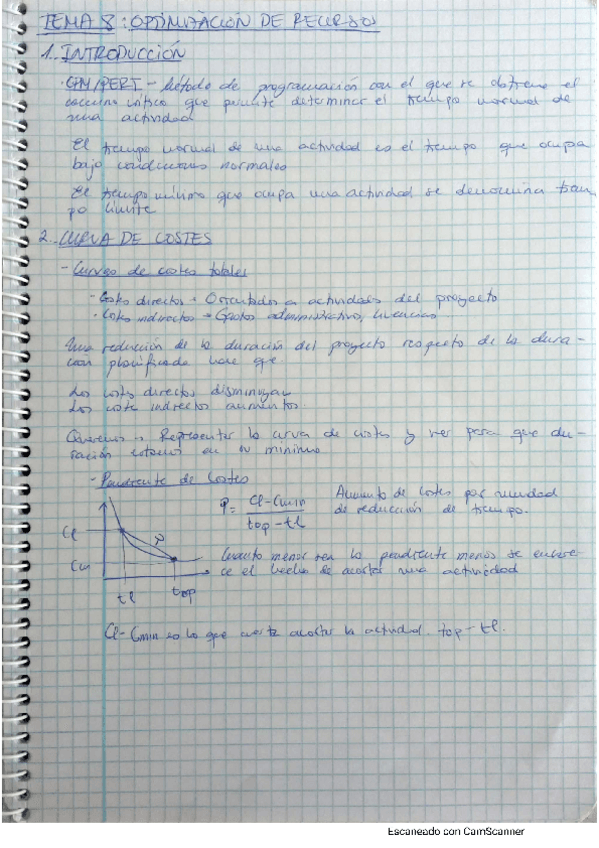 TEMA 8: OPTIMIZACIÓN DE RECURSOS
1. INTRODUCCIÓN
CPM/PERT - Método de programación con el que se obtiene el
camino crítico que permite determinar el tiempo normal de
una actividad
El tiempo normal de una actividad es el tiempo que ocupa
bajo condiciones normales
El tiempo mínimo que ocupa una actividad se denomina tiem
po límite
2. CURVA DE COSTES
- Curvas de costes totales
- Costes directos - Orientados a actividades del proyecto
- Costes indirectos → Gastos administrativo, licencias
Una reducción de la duración del proyecto respecto de la dura-
ción planificada hace que
Los costes directos disminuyan
Los coste indirectos aumentos.
Queremos → Representar la curva de costes y ver para que du-
ración estamos en su mínimo
- Pendiente de Costes
P = Cl - Cmin / top - tl
Aumento de costes por unidad
de reducción de tiempo.
Cl
P
Cuanto menor sea la pendiente menos se encare-
ce el hecho de acortar una actividad
Cm
tl
top
Cl - Cmin es lo que cuesta acortar la actividad top - tl.
Escaneado con CamScanner